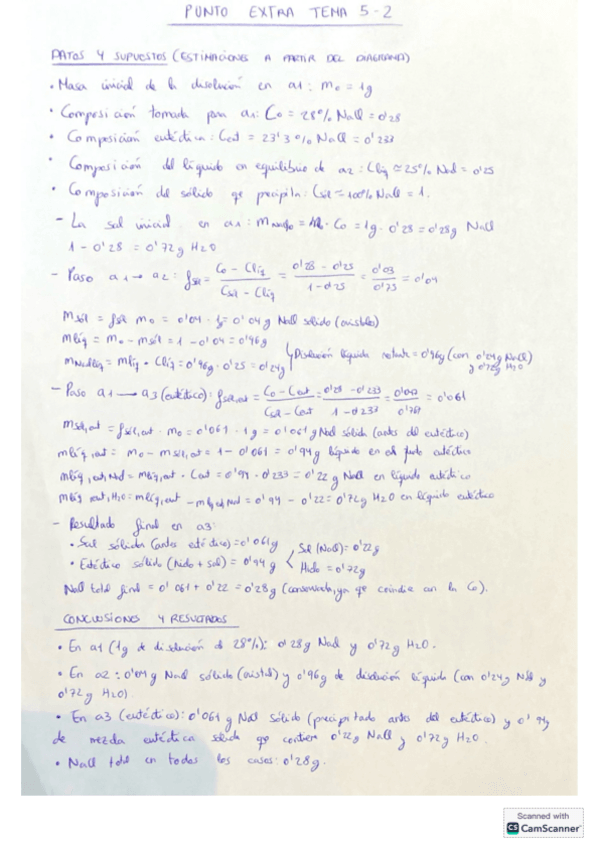 PUNTO EXTRA TEMA 5-2
DATOS Y SUPUESTOS (ESTIMACIONES A PARTIR DEL DIAGRAMA)
• Masa inicial de la disolución en a1: m0 = 1g
• Composición tomada para a1: C0 = 28% NaCl = 0'28
• Composición eutéctica: Ceut = 23'3% NaCl = 0'233
• Composición del líquido en equilibrio de a2: Cliq ≃ 25% NaCl = 0'25
• Composición del sólido qe precipita: Csól ≃ 100% NaCl = 1.
- La sal inicial en a1: = m0 · C0 = 1g · 0'28 = 0'28g NaCl
1 - 0'28 = 0'72g H2O
- Paso a1 → a2: fsól = (C0 - Cliq)/(Csól - Cliq) = (0'28 - 0'25)/(1 - 0'25) = 0'03/0'75 = 0'04
msól = fsól · m0 = 0'04 · 1g = 0'04g NaCl sólido (cristales)
mlíq = m0 - msól = 1 - 0'04 = 0'96g
mNaCl,liq = mlíq · Cliq = 0'96g · 0'25 = 0'24g
Disolución líquida restante = 0'96g (con 0'24g NaCl)
y 0'72g H2O
- Paso a1 → a3 (eutéctico): fsól,eut = (C0 - Ceut)/(Csól - Ceut) = (0'28 - 0'233)/(1 - 0'233) = /0'767 = 0'061
msól,eut = fsól,eut · m0 = 0'061 · 1g = 0'061g NaCl sólida (antes del eutéctico)
mlíq,eut = m0 - msól,eut = 1 - 0'061 = 0'94g líquido en el punto eutéctico
mlíq,eut,NaCl = mlíq,eut · Ceut = 0'94 · 0'233 = 0'22g NaCl en líquido eutéctico
mlíq,eut,H2O = mlíq,eut - mlíq,eut,NaCl = 0'94 - 0'22 = 0'72g H2O en líquido eutéctico
- Resultado final en a3:
• Sal sólida (antes eutéctico) = 0'061g
• Eutéctico sólido (hielo + sal) = 0'94g
Sal (NaCl) = 0'22g
Hielo = 0'72g
NaCl total final = 0'061 + 0'22 = 0'28g (conservado, ya que coincide con la C0).
CONCLUSIONES Y RESULTADOS
• En a1 (1g de disolución al 28%): 0'28g NaCl y 0'72g H2O.
• En a2: 0'04g NaCl sólido (cristal) y 0'96g de disolución líquida (con 0'24g NaCl y
0'72g H2O)
• En a3 (eutéctico): 0'061g NaCl sólido (precipitado antes del eutéctico) y 0'94g
de mezcla eutéctica sólida qe contiene 0'22g NaCl y 0'72g H2O.
• NaCl total en todos los casos: 0'28g.
Scanned with
CS CamScanner